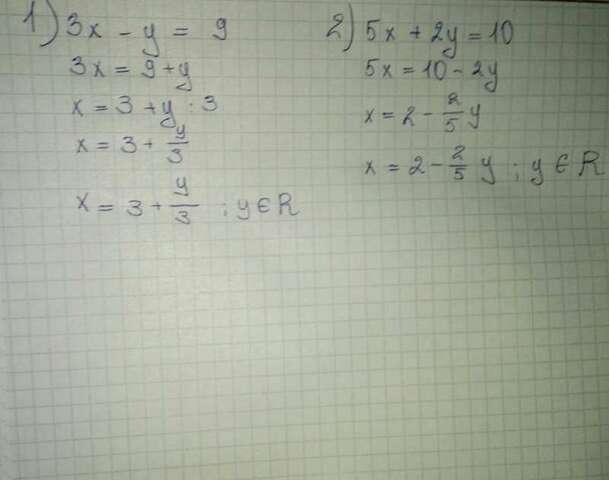 1) 3x - y = 9
3x = 9 + y
x = 3 + y : 3
x = 3 + y/3
x = 3 + y/3 ; y ∈ R
2) 5x + 2y = 10
5x = 10 - 2y
x = 2 - 2/5 y
x = 2 - 2/5 y ; y ∈ R